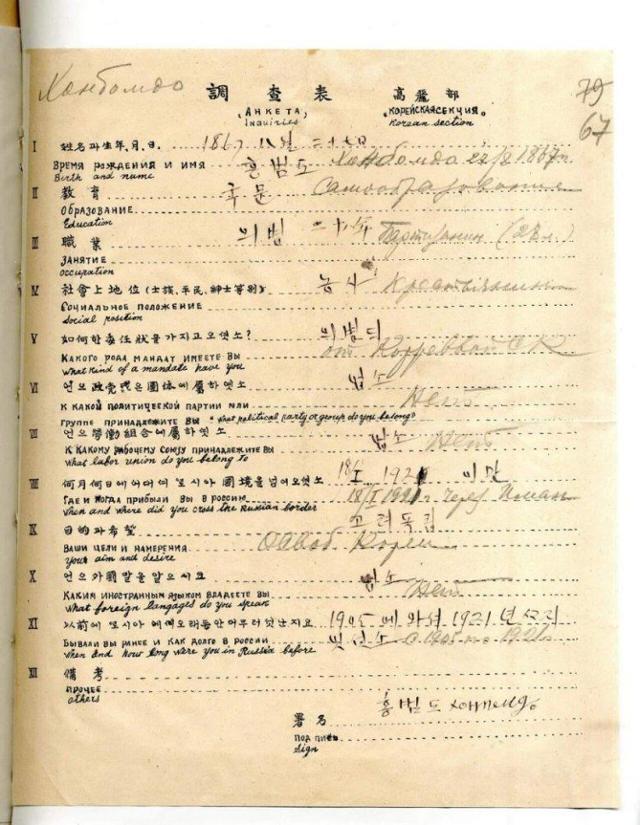 Хонбомдо
調查表 高麗部
АНКЕТА КОРЕЙСКАЯ СЕКЦИЯ
Inquiries Korean section
79
67
I 姓名과 生年.月.日. 1867
ВРЕМЯ РОЖДЕНИЯ И ИМЯ 홍범도 Хонбомдо 1867г.
Birth and name
II 教育 국문 Самообразование
ОБРАЗОВАНИЕ
Education
III 職業 의병 二十年 Партизанин
ЗАНЯТИЕ
occupation
IV 社會上地位 (士族, 平民, 紳士等別) 농사 Крестьянин
СОЦИАЛЬНОЕ ПОЛОЖЕНИЕ
Social position
V 如何한 委任狀을 가지고 오엿소? 의병듸
КАКОГО РОДА МАНДАТ ИМЕЕТЕ ВЫ от
what kind of a mandate have you
VI 언으 政党 或은 團体에 屬하엿소 업소
К КАКОЙ ПОЛИТИЧЕСКОЙ ПАРТИИ ИЛИ Нет
ГРУППЕ ПРИНАДЛЕЖИТЕ ВЫ what political party or group do you belong?
VII 언으 勞働組合에 屬하엿소 업소 Нет
К КАКОМУ РАБОЧЕМУ СОЮЗУ ПРИНАДЛЕЖИТЕ ВЫ
what labor union do you belong to
VIII 何月何日에 어데여 로시아 國境을 넘어 오엿소 1921 이만
ГДЕ И КОГДА ПРИБЫЛИ ВЫ В РОССИЮ 18/I 1921г. через Иман
When and where did you cross the Russian border
IX 目的과 希望 고려독립
ВАШИ ЦЕЛИ И НАМЕРЕНИЯ Освоб. Кореи
your aim and desire
X 언으 外國말을 알으시오 업소
КАКИМ ИНОСТРАННЫМ ЯЗЫКОМ ВЛАДЕЕТЕ ВЫ Нет
what foreign langages do you speak
XI 以前에 로시아에 에 오래동안 머무러 잇난지요 1905 에 와셔 1921 년
БЫВАЛИ ВЫ РАНЕЕ И КАК ДОЛГО В РОССИИ с 1905 по 1921г.
when and how long were you in Russia before
XII 備考
ПРОЧЕЕ
others
홍범도
署名
ПОДПИСЬ
Sign